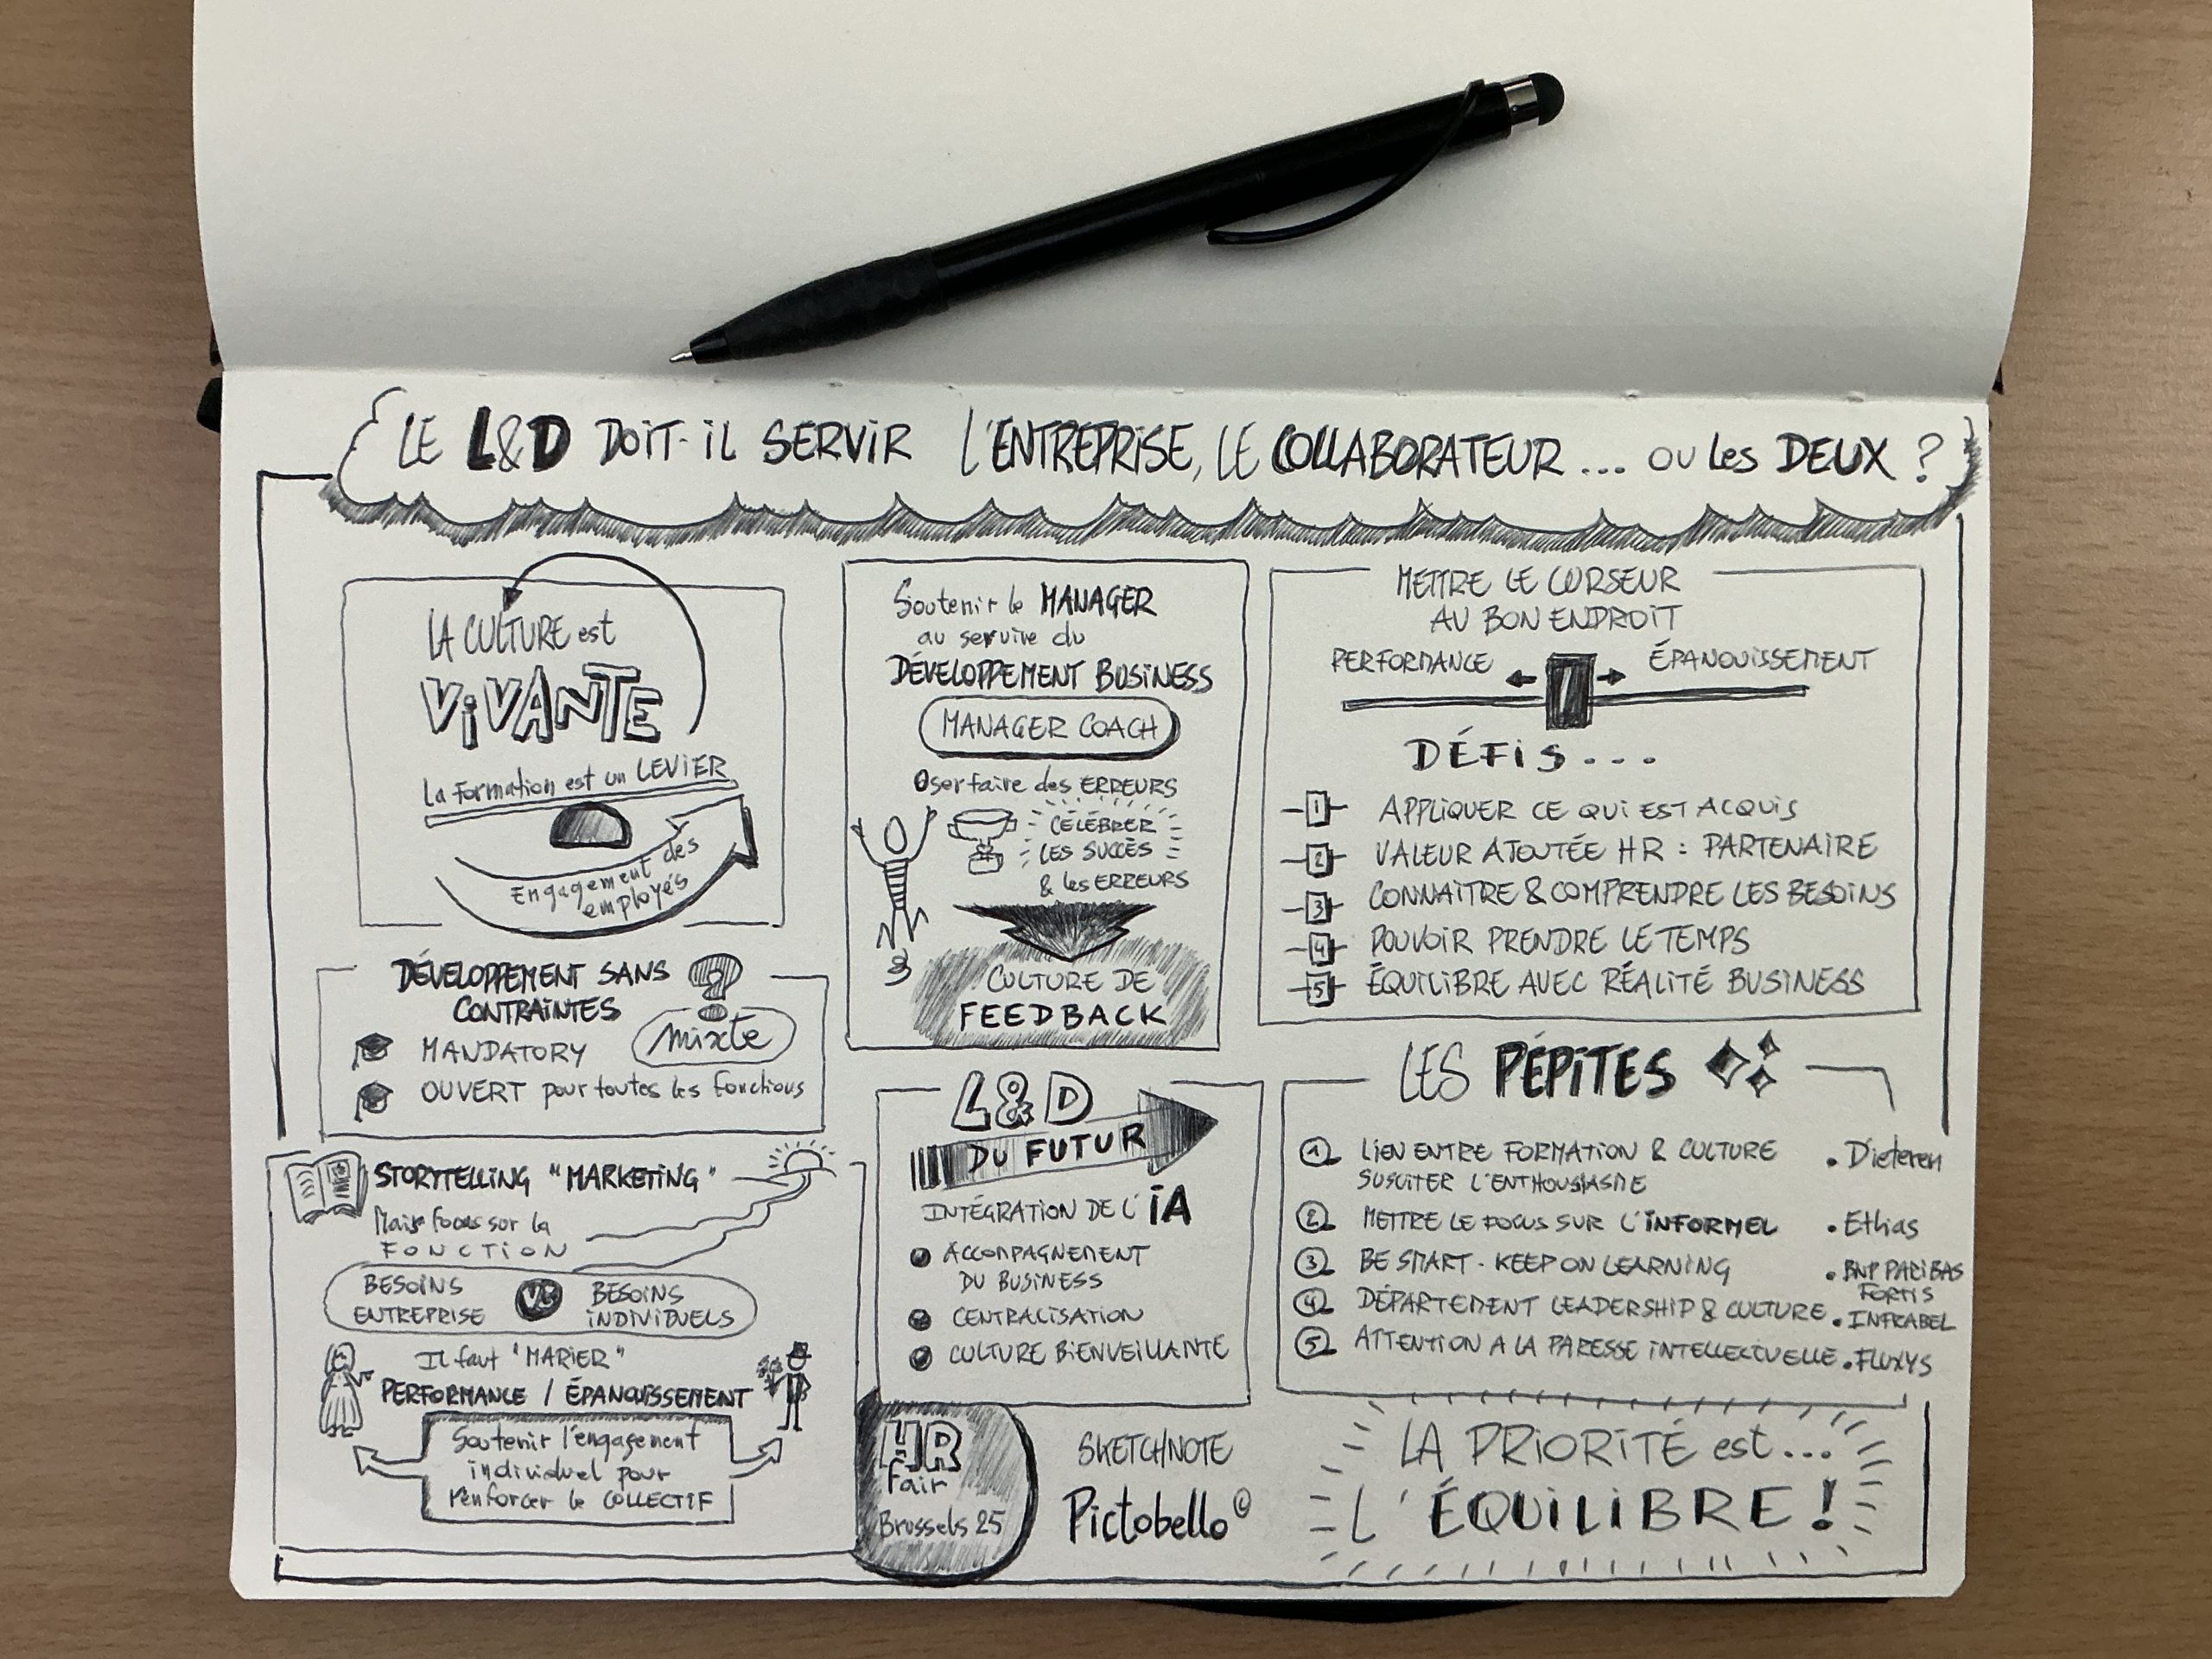 LE L&D DOIT-iL SERViR L'ENTREPRiSE, LE COLLABORATEUR... OU Les DEUX ?
LA CULTURE est
ViVANTE
La Formation est un LEVIER
Engagement des
employés
DÉVELOPPEMENT SANS ?
CONTRAiNTES
mixte
MANDATORY
OUVERT pour toutes les fonctions
STORYTELLING "MARKETiNG"
Mais focus sur la
FONCTiON
BESOiNS
ENTREPRiSE
VS
BESOiNS
iNDiViDUELS
Il faut "MARiER"
PERFORMANCE / ÉPANOUiSSEMENT
Soutenir l'engagement
individuel pour
renforcer le COLLECTiF
Soutenir le MANAGER
au service du
DÉVELOPPEMENT BUSiNESS
MANAGER COACH
Oser faire des ERREURS
CÉLÉBRER
LES SUCCÈS
& les ERREURS
CULTURE DE
FEEDBACK
L&D
DU FUTUR
INTÉGRATION DE L'iA
ACCOMPAGNEMENT
DU BUSiNESS
CENTRALiSATiON
CULTURE BiENVEiLLANTE
HR
Fair
Brussels 25
SKETCHNOTE
Pictobello©
METTRE LE CURSEUR
AU BON ENDROiT
PERFORMANCE ÉPANOUiSSEMENT
DÉFiS...
1 APPLiQUER CE QUi EST ACQUiS
2 VALEUR AJOUTÉE HR : PARTENAiRE
3 CONNAiTRE & COMPRENDRE LES BESOiNS
4 POUVOiR PRENDRE LE TEMPS
5 ÉQUiLiBRE AVEC RÉALiTÉ BUSiNESS
LES PÉPiTES
1 LiEN ENTRE FORMATiON & CULTURE • Dieteren
SUSCiTER L'ENTHOUSiASME
2 METTRE LE FOCUS SUR L'iNFORMEL • Ethias
3 BE SMART - KEEP ON LEARNiNG • BNP PARiBAS
FORTiS
4 DÉPARTEMENT LEADERSHiP & CULTURE • INFRABEL
5 ATTENTiON A LA PARESSE iNTELLECTUELLE • FLUXYS
LA PRiORiTÉ est...
L'ÉQUiLiBRE !